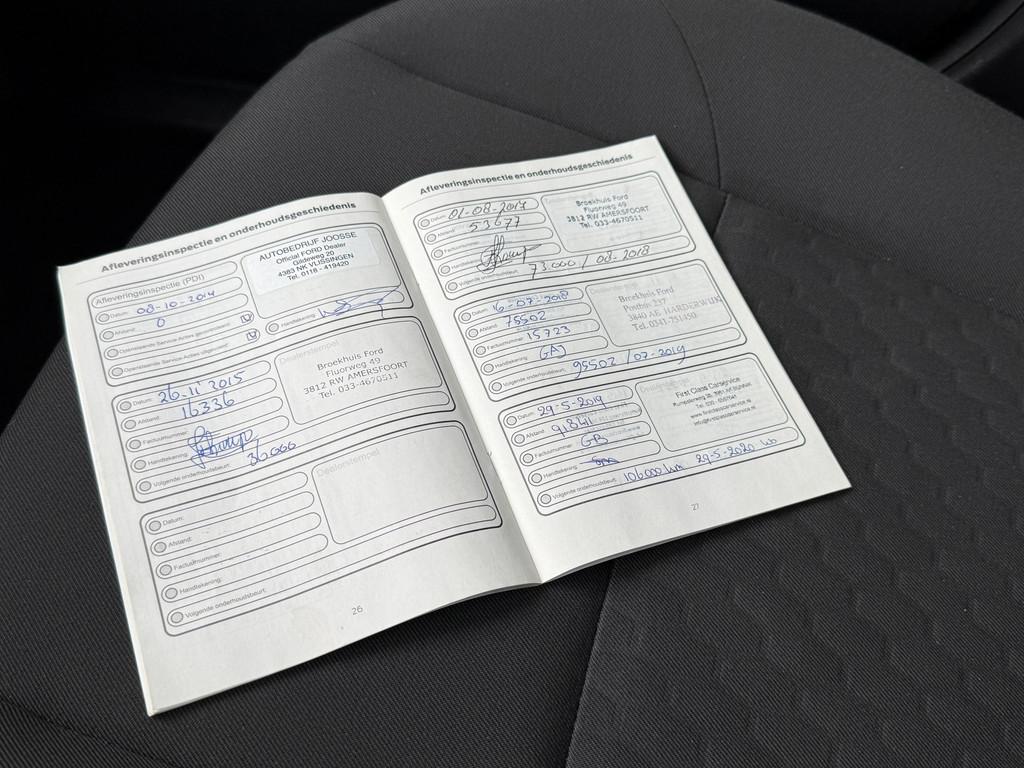 Afleveringsinspectie en onderhoudsgeschiedenis
Afleveringsinspectie (PDI)
Datum: 08-10-2014
Afstand: 0
Openstaande Service-Acties gecontroleerd:
Openstaande Service-Acties uitgevoerd:
Handtekening:
AUTOBEDRIJF JOOSSE
Official FORD Dealer
Gildeweg 20
4383 NK VLISSINGEN
Tel. 0118 - 419420
Datum: 26-11-2015
Afstand: 16336
Factuurnummer:
Handtekening:
Volgende onderhoudsbeurt: 36000
Dealerstempel
Broekhuis Ford
Fluorweg 49
3812 RW AMERSFOORT
Tel. 033-4670511
Datum:
Afstand:
Factuurnummer:
Handtekening:
Volgende onderhoudsbeurt:
Dealerstempel
26
Afleveringsinspectie en onderhoudsgeschiedenis
Datum: 01-08-2017
Afstand: 53677
Factuurnummer:
Handtekening:
Volgende onderhoudsbeurt: 73.000 / 08-2018
Broekhuis Ford
Fluorweg 49
3812 RW AMERSFOORT
Tel. 033-4670511
Datum: 16-07-2018
Afstand: 75502
Factuurnummer: 15723
Handtekening: GAJ
Volgende onderhoudsbeurt: 95502 / 07-2019
Dealerstempel
Broekhuis Ford
Postbus 237
3840 AE HARDERWIJK
Tel. 0341-751450
Datum: 29-5-2019
Afstand: 91841
Factuurnummer: GB
Handtekening:
Volgende onderhoudsbeurt: 106000 km 29-5-2020
First Class Carservice
27